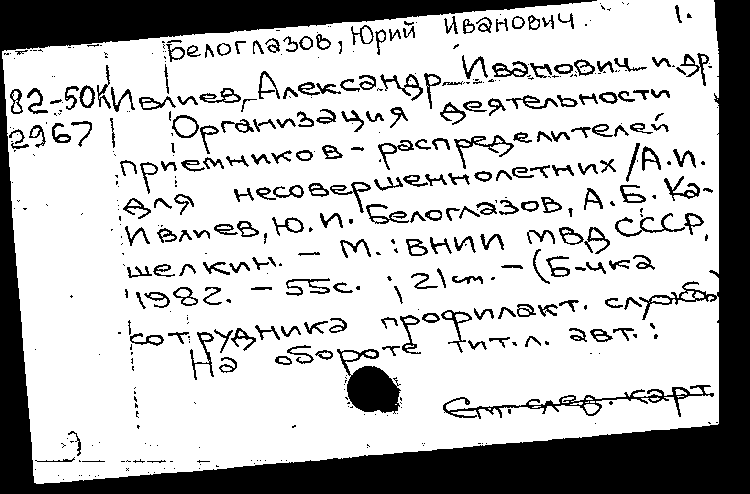 Белоглазов, Юрий Иванович. 1.
82-50К Ивлиев, Александр Иванович и др.
2967 Организация деятельности
приемников-распределителей
для несовершеннолетних /А.И.
Ивлиев, Ю.И. Белоглазов, А.Б. Ка-
шелкин. - М.: ВНИИ МВД СССР,
1982. - 55с. ; 21см. - (Б-чка
сотрудника профилакт. службы)
На обороте тит.л. авт.:
См. след. карт.